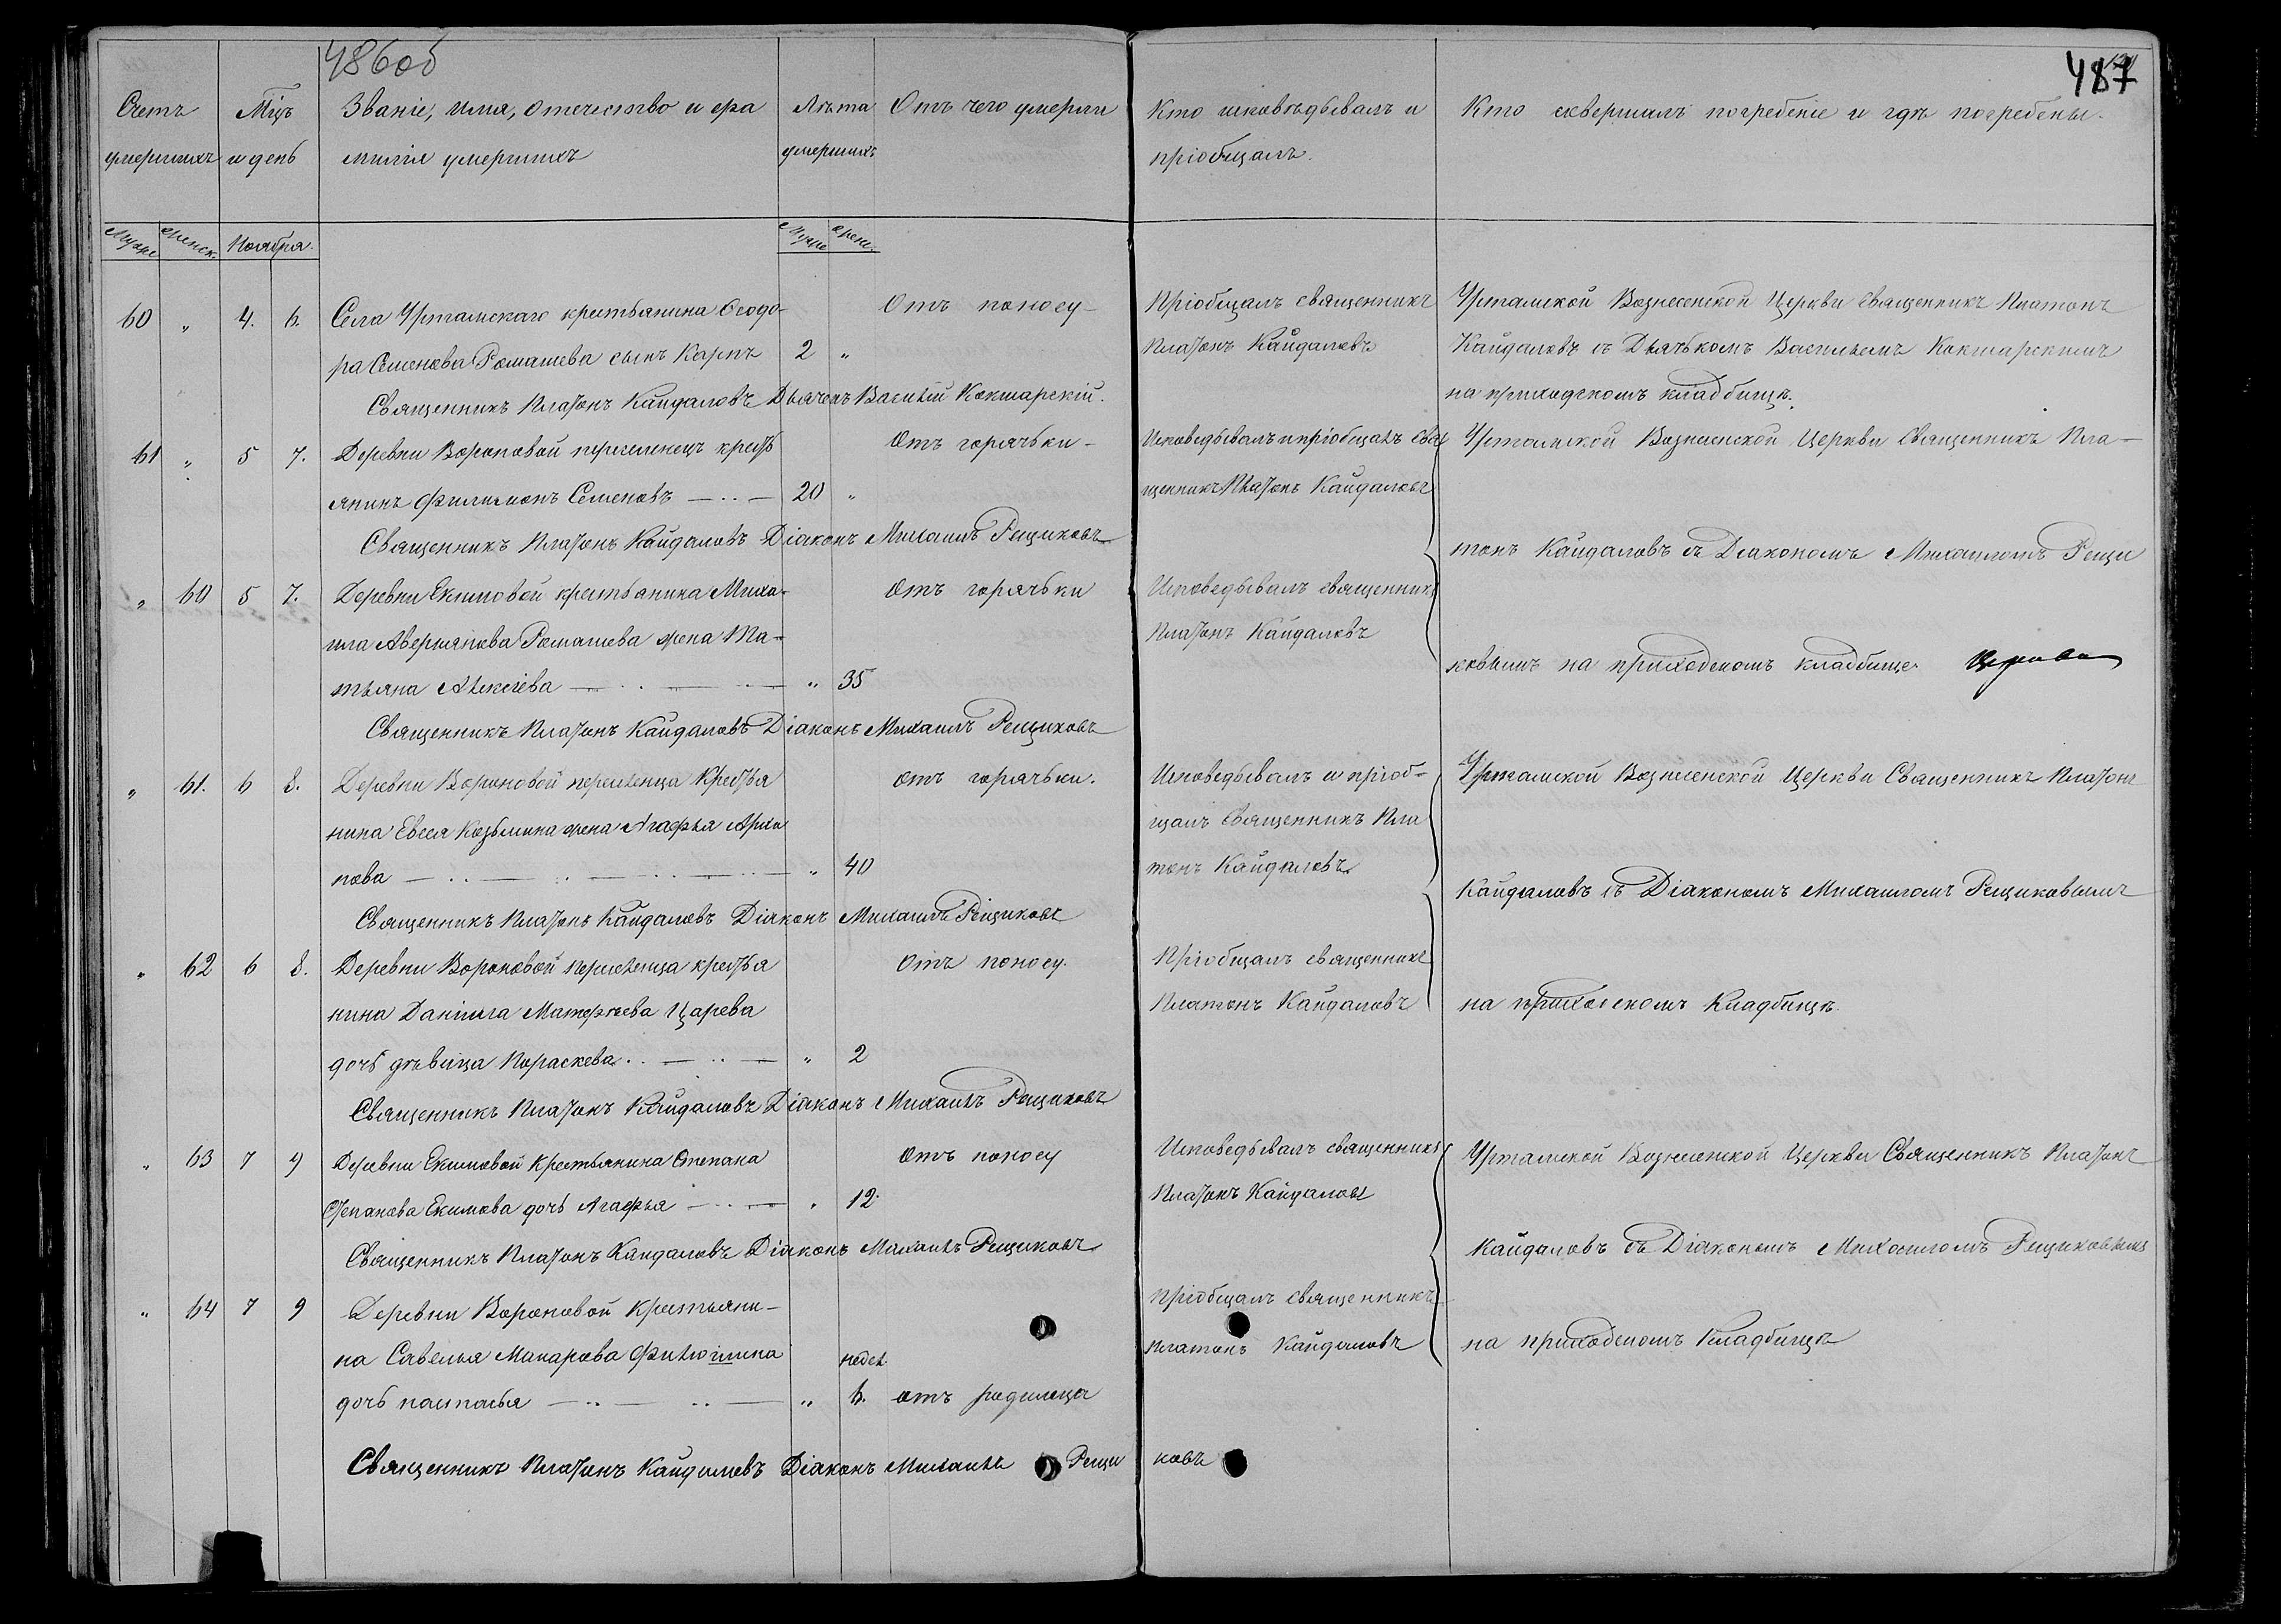 486об
487
Счетъ умершихъ
Мцъ и день
Званіе, имя, отечество и фамилія умершихъ
Лѣта умершихъ
Отъ чего умерли
Кто исповѣдывалъ и пріобщалъ.
Кто совершалъ погребеніе и гдѣ погребены.
Муж. Женск. Ноября. Муж. Женс.
60 " 4. 6. Села Уртамскаго крестьянина Ѳеодо-
ра Семенова Ромашева сынъ Карпъ 2 "
Отъ поносу-
Пріобщалъ священникъ
Платонъ Кайдаловъ
Уртамской Вознесенской Церкви Священникъ Платонъ
Кайдаловъ съ Дьячькомъ Васильемъ Кокшарскимъ
на приходскомъ кладбищѣ.
Священникъ Платонъ Кайдаловъ Дьячекъ Василій Кокшарскій.
61 " 5 7. Деревни Вороновой переселенецъ кресть
янинъ Филимонъ Семеновъ 20 "
Отъ горячьки-
Исповедывалъ и пріобщалъ свя
щенникъ Платонъ Кайдаловъ
Уртамской Вознесенской Церкви Священникъ Пла-
тонъ Кайдаловъ съ Діакономъ Михаиломъ Рещи
ковымъ на приходскомъ кладбище
Священникъ Платонъ Кайдаловъ Діаконъ Михаилъ Рещиковъ
" 60 5 7. Деревни Екимовой крестьянина Миха-
ила Аверьянова Ромашева жена Та-
тьяна Алексіева " 35
Отъ горячьки
Исповедывалъ священникъ
Платонъ Кайдаловъ
Священникъ Платонъ Кайдаловъ Діаконъ Михаилъ Рещиковъ
" 61. 6 8. Деревни Вороновой переселенца Крестья
нина Евсея Козьмина жена Агафья Архи
пова " 40
отъ горячьки.
Исповедывалъ и пріоб-
щалъ Священникъ Пла
тонъ Кайдаловъ
Уртамской Вознесенской Церкви Священникъ Платонъ
Кайдаловъ съ Діакономъ Михаиломъ Рещиковымъ
на приходскомъ Кладбищѣ.
Священникъ Платонъ Кайдаловъ Діаконъ Михаилъ Рещиковъ
" 62 6 8. Деревни Вороновой переселенца крестья
нина Даніила Матфѣева Царева
дочь дѣвица Пораскева " 2
Отъ поносу.
Пріобщалъ священникъ
Платонъ Кайдаловъ
Священникъ Платонъ Кайдаловъ Діаконъ Михаилъ Рещиковъ
" 63 7 9 Деревни Екимовой Крестьянина Степана
Степанова Екимова дочь Агафья " 12
Отъ поносу
Исповедывалъ священникъ
Платонъ Кайдаловъ
Уртамской Вознесенской Церкви Священникъ Платонъ
Кайдаловъ съ Діакономъ Михаиломъ Рещиковымъ
на приходскомъ Кладбищѣ
Священникъ Платонъ Кайдаловъ Діаконъ Михаилъ Рещиковъ
" 64 7 9 Деревни Вороновой Крестьяни-
на Савелья Макарова
недел.
дочь " 6. отъ родимца
Пріобщалъ священникъ
Платонъ Кайдаловъ
Священникъ Платонъ Кайдаловъ Діаконъ Михаилъ Рещиковъ